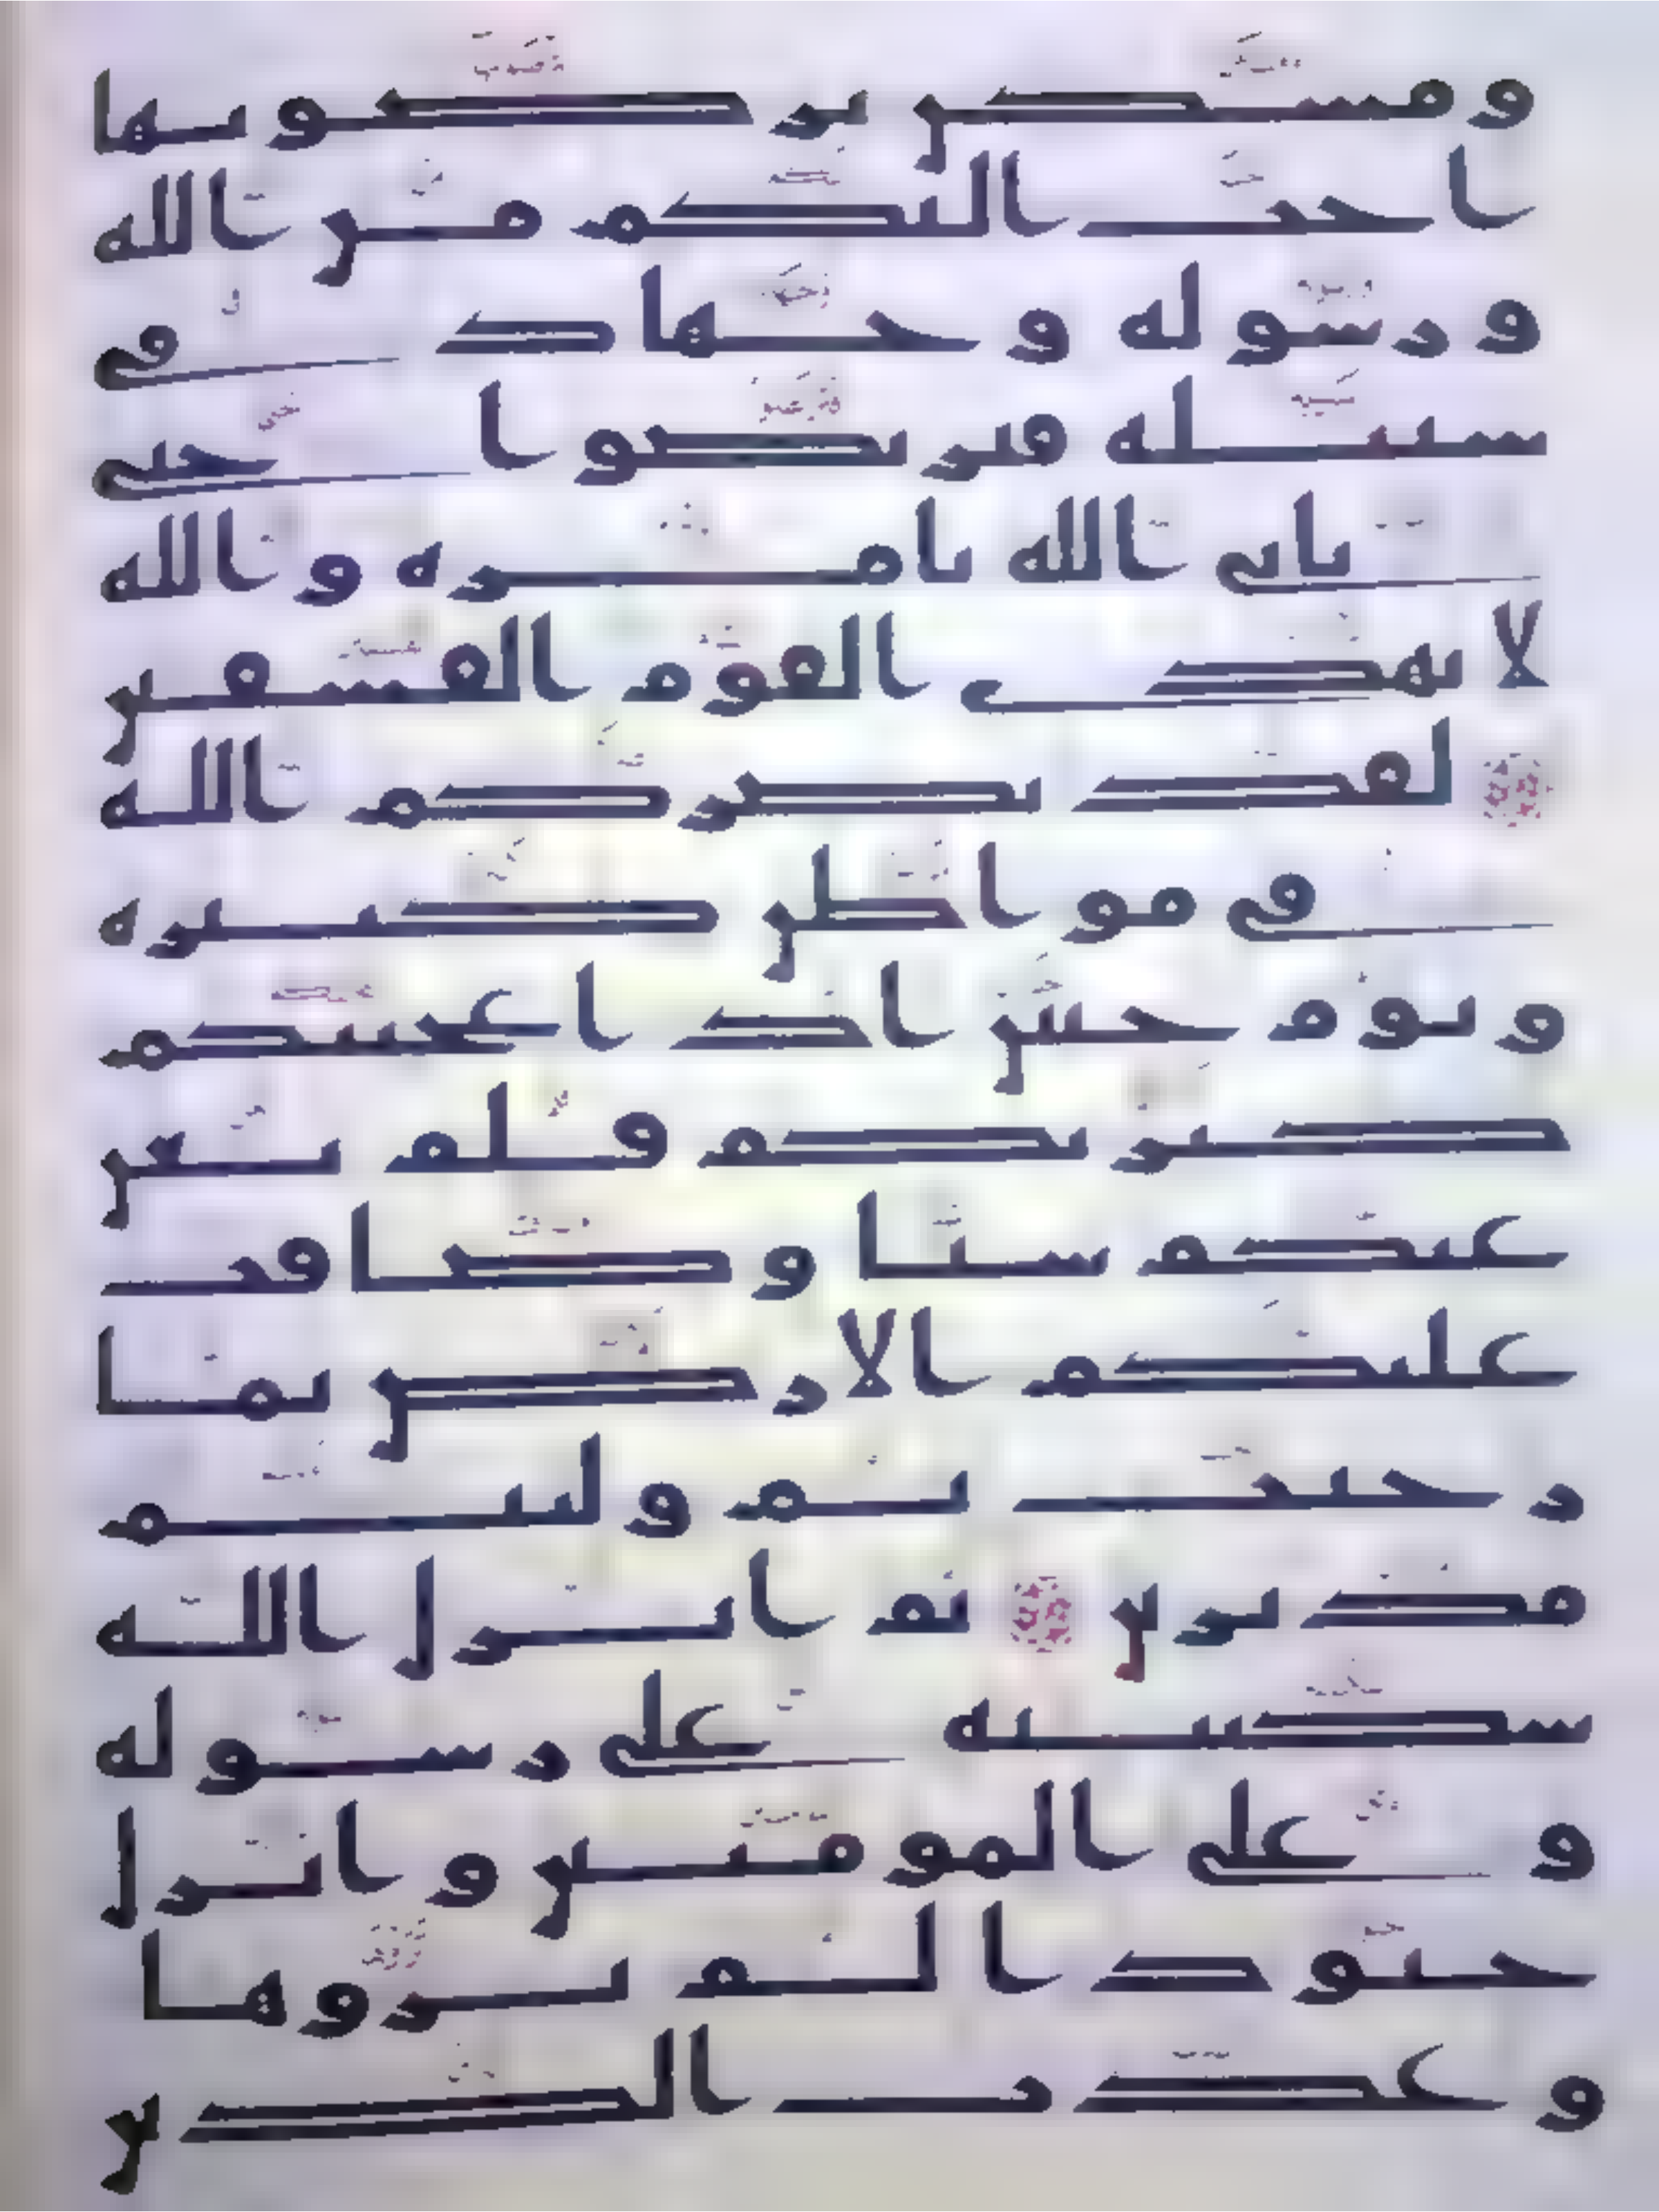 ومسكن ترضونها
احب اليكم من الله
ورسوله وجهاد في
سبيله فتربصوا حتى
ياتي الله بامره والله
لا يهدي القوم الفسقين
لقد نصركم الله
في مواطن كثيره
ويوم حنين اذ اعجبتكم
كثرتكم فلم تغن
عنكم شيا وضاقت
عليكم الارض بما
رحبت ثم وليتم
مدبرين ثم انزل الله
سكينته على رسوله
وعلى المومنين وانزل
جنودا لم تروها
وعذب الذين